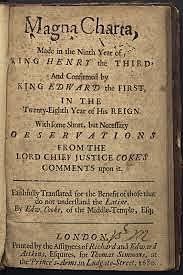 Magna Charta,
Made in the Ninth Year of
KING HENRY the THIRD,
And Confirmed by
KING EDWARD the FIRST,
IN THE
Twenty-Eighth Year of His REIGN.
With some Short, but Necessary
OBSERVATIONS
FROM THE
LORD CHIEF JUSTICE COKES
COMMENTS upon it.
Faithfully Translated for the Benefit of those that
do not understand the Latine.
By Edw. Cooke, of the Middle-Temple, Esq.
LONDON
Printed by the Assignees of Richard and Edward
Atkins, Esquires, for Thomas Simmons, at
the Prince's-Arms, in Ludgate-Street, 1680.